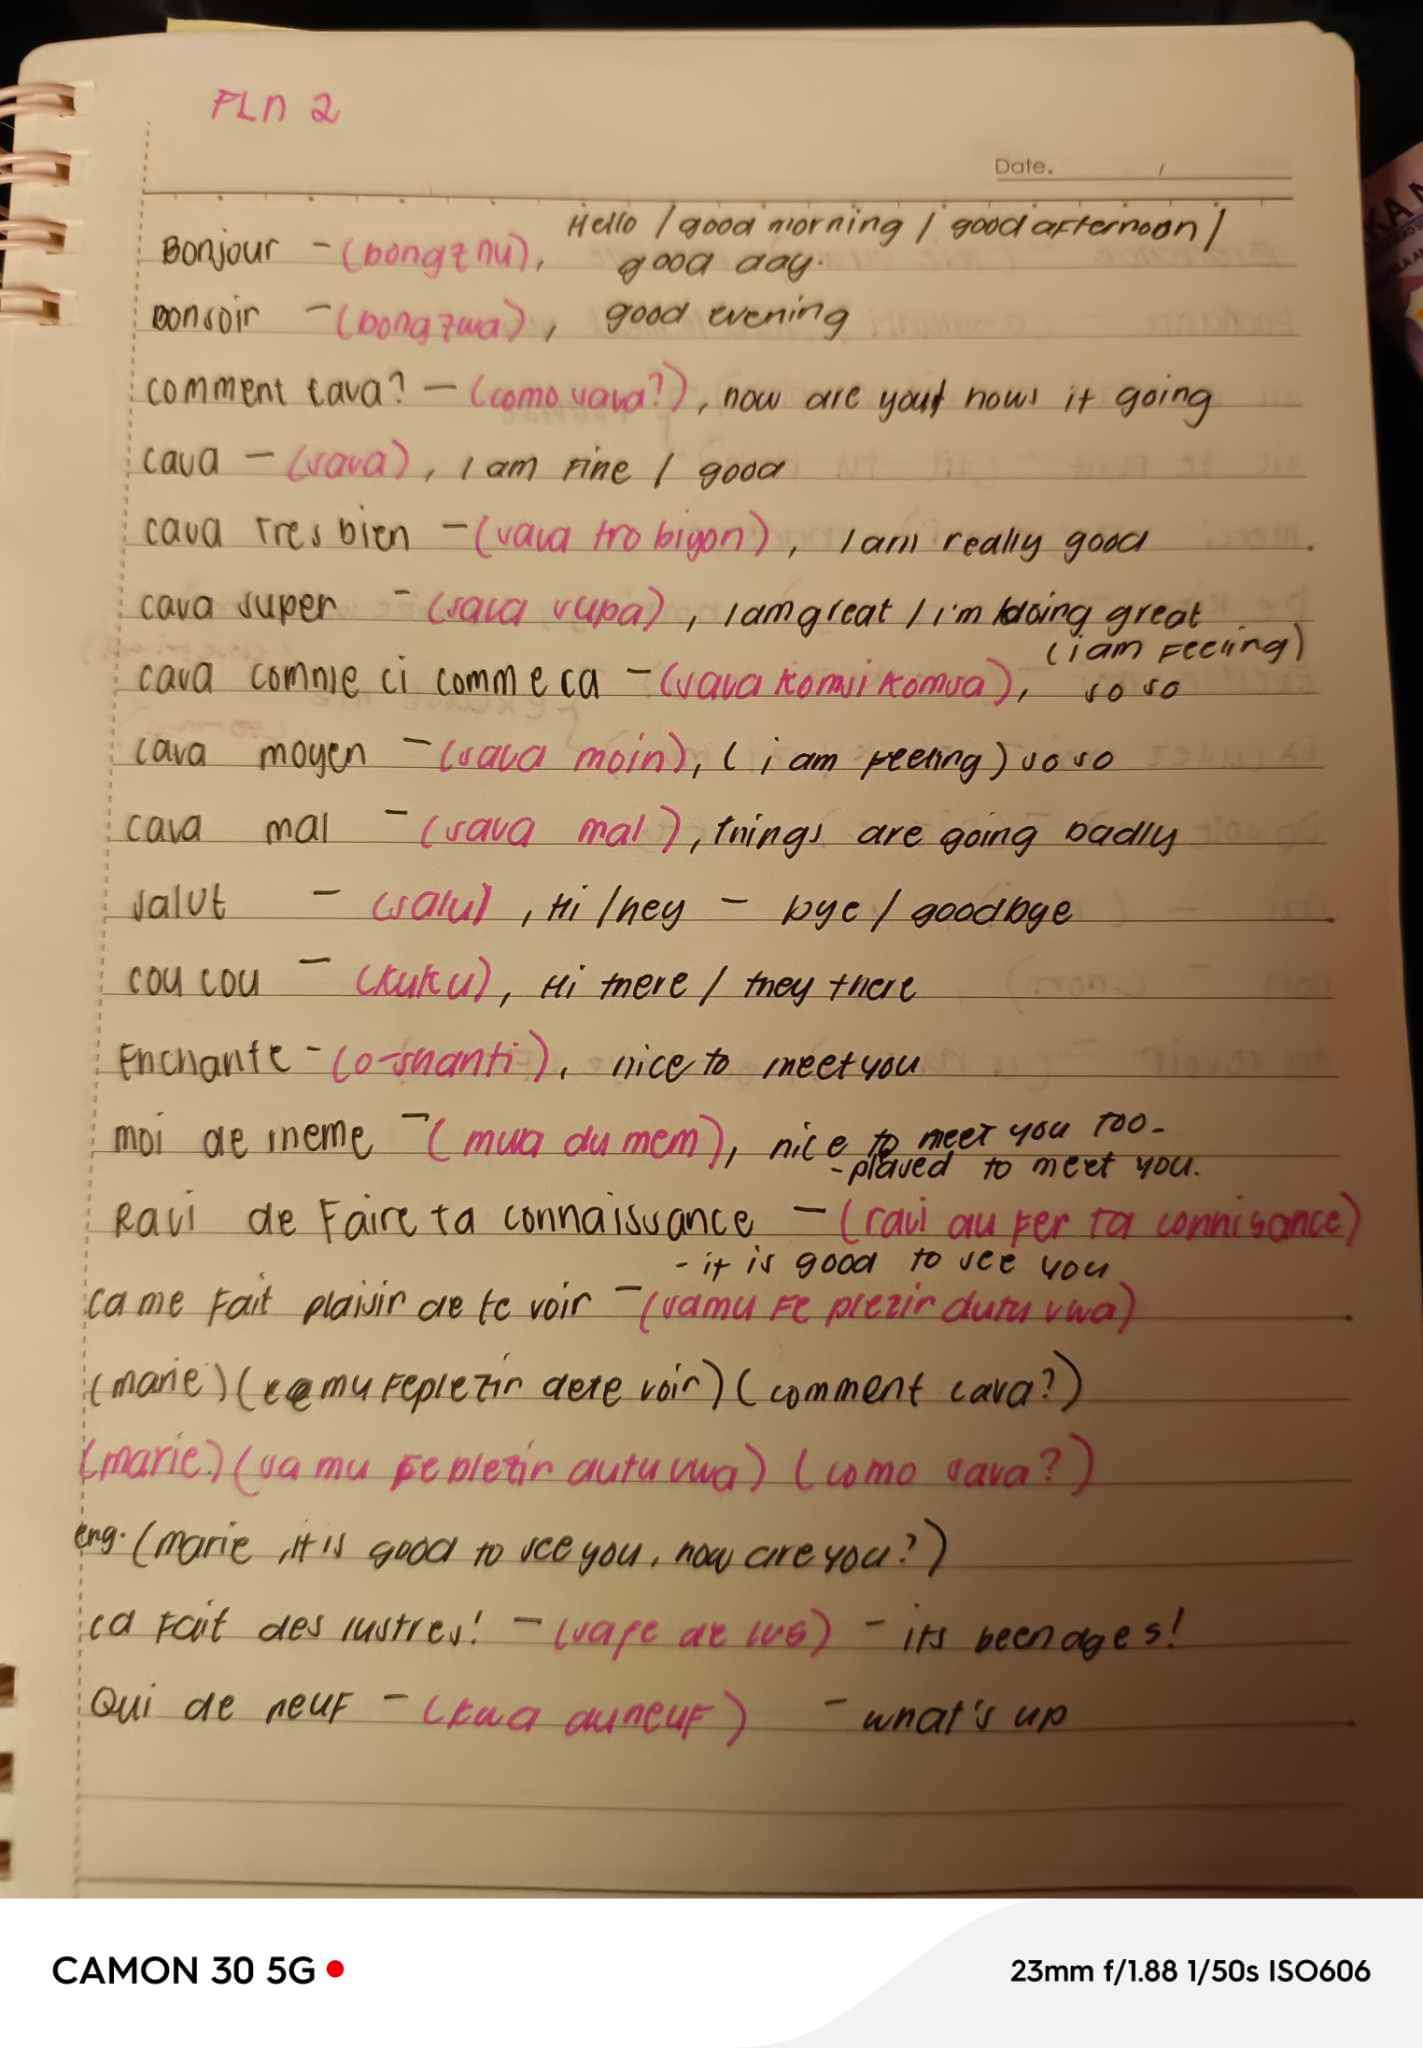 FLn 2
Date. /
Bonjour - (bongznu), Hello / good morning / good afternoon /
good day.
Bonsoir - (bongzwa), good evening
comment cava? - (como sava?), how are you/ hows it going
cava - (sava), I am Fine / good
cava Tres bien - (sava tro biyon), I am really good
cava super - (sava supa), I am great / i'm doing great
(i am Feeling)
cava comme ci comme ca - (sava komsi komsa), so so
cava moyen - (sava moin), (i am Feeling) so so
cava mal - (sava mal), things are going badly
salut - (salu), Hi / hey - bye / goodbye
cou cou - (kuku), Hi there / they there
Enchante - (o-shanti), nice to meet you
moi de meme - (mwa du mem), nice to meet you too-
- plaued to meet you.
Ravi de Faire ta connaissance - (ravi du Fer ta connisance)
- it is good to see you
ca me Fait plaisir de te voir - (samu Fe plezir dutu vwa)
(marie) (ca mu Feplezir dete voir) (comment cava?)
(marie) (sa mu Fe plezir dutu vwa) (como sava?)
eng. (marie, it is good to see you, how are you?)
ca Fait des lustres! - (safe de lus) - its been ages!
Qui de neuF - (kwa duneuF) - what's up
CAMON 30 5G
23mm f/1.88 1/50s ISO606